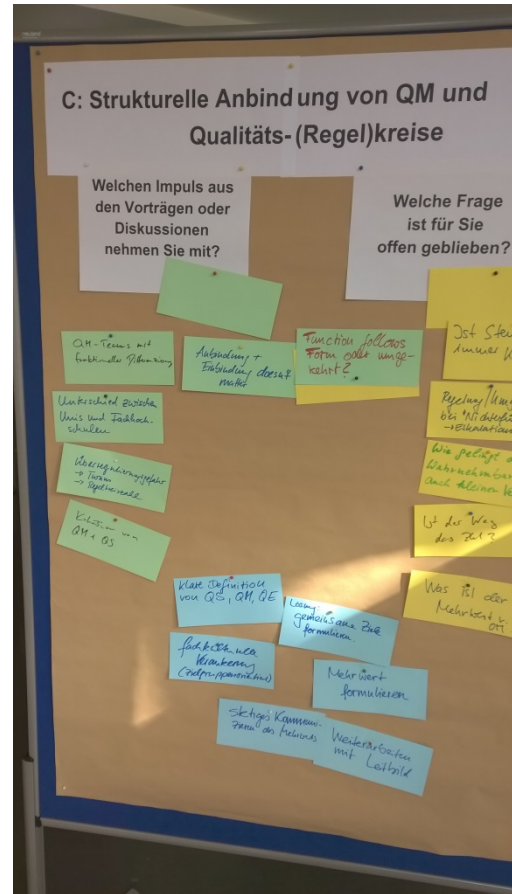 C: Strukturelle Anbindung von QM und
Qualitäts-(Regel)kreise
Welchen Impuls aus
den Vorträgen oder
Diskussionen
nehmen Sie mit?
Welche Frage
ist für Sie
offen geblieben?
QM-Teams mit
funktionaler
Anbindung +
Einbindung doesn't
matter
Function follows
Form oder umge-
kehrt?
Unterschied zwischen
Unis und Fachhoch-
schulen
Überregulierungsgefahr
→
→
von
QM + QS
Ist
immer
Regelung
bei
→
Wie gelingt
auch kleiner
Ist der Weg
das Ziel?
Was ist der
Mehrwert v.
Klare Definition
von QS, QM, QE
gemeinsame Ziele
formulieren.
fachkulturelle
Verankerung
Mehrwert
formulieren
stetiges Kommuni-
zieren des Mehrwerts
Weiterarbeiten
mit Leitbild